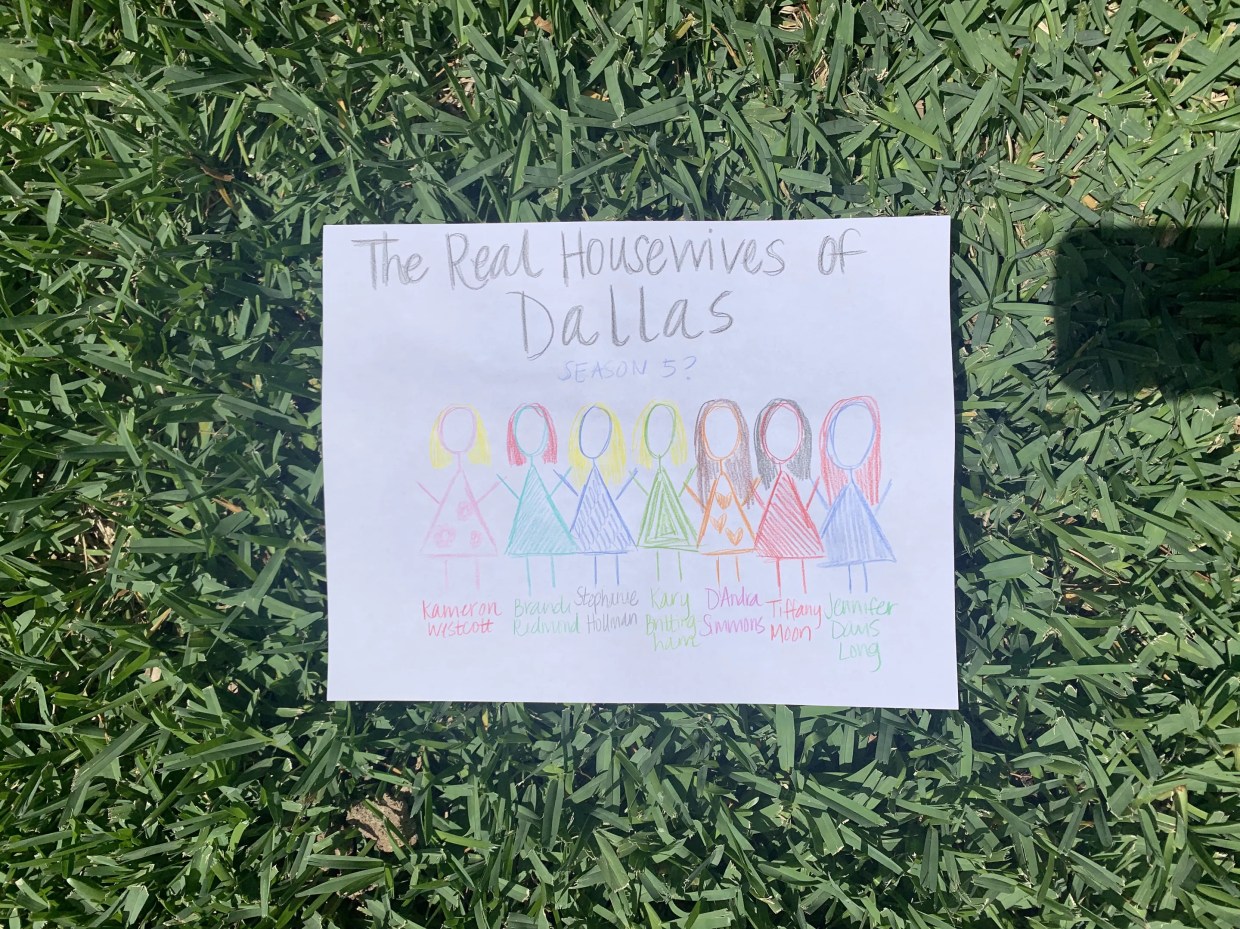 The Real Housewives of
Dallas
SEASON 5?
Kameron
Westcott
Brandi
Redmond
Stephanie
Hollman
Kary
Brittingham
D'Andra
Simmons
Tiffany
Moon
Jennifer
Davis
Long